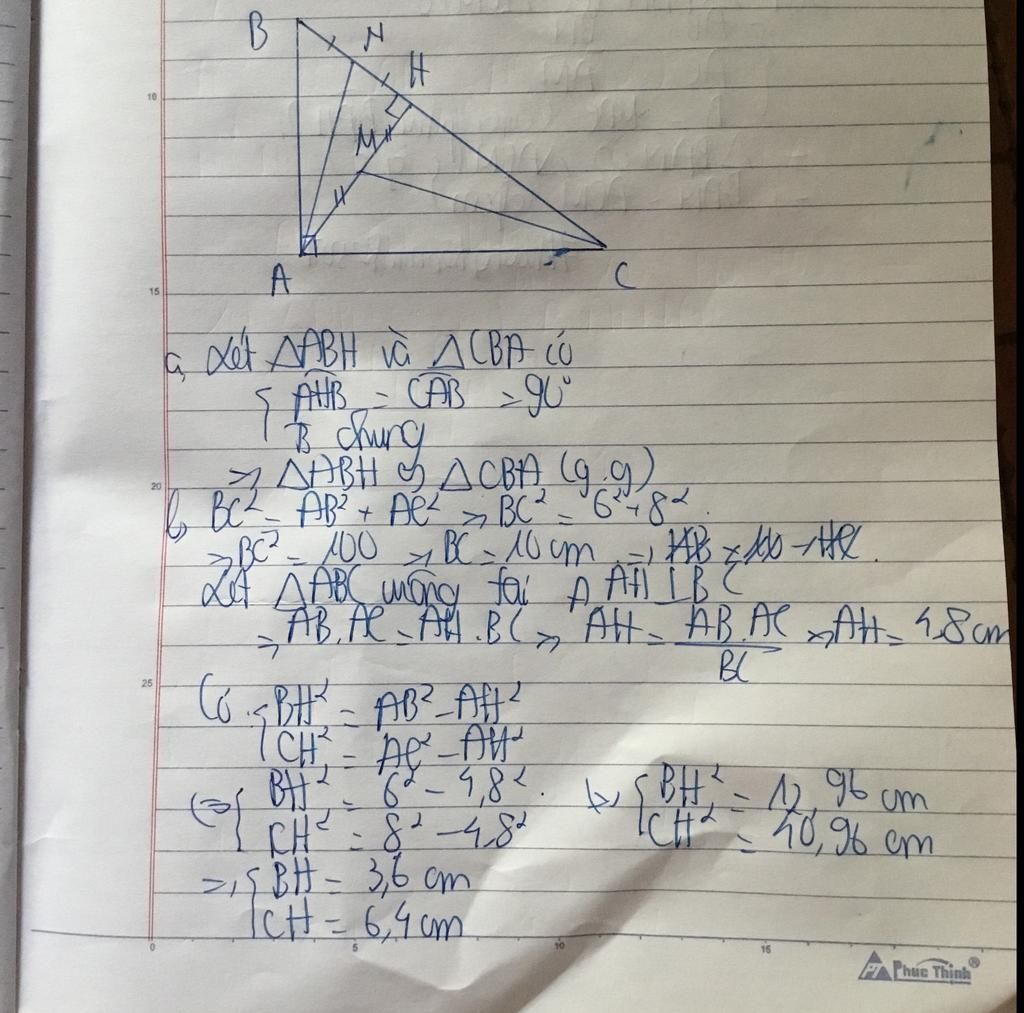 B
N
H
M
A
C
a, Xét △ABH và △CBA có
{ AHB = CAB = 90°
B chung
=> △ABH ∽ △CBA (g.g)
b, BC² = AB² + AC² => BC² = 6² + 8².
=> BC² = 100 => BC = 10 cm
Xét △ABC vuông tại A AH ⊥ BC
=> AB.AC = AH.BC => AH = AB.AC / BC => AH = 4,8 cm
Có { BH² = AB² - AH²
CH² = AC² - AH²
(=> { BH² = 6² - 4,8².
CH² = 8² - 4,8²
{ BH² = 12,96 cm
CH² = 40,96 cm
=> { BH = 3,6 cm
CH = 6,4 cm
10
15
20
25
0
5
10
15
Phuc Thinh®